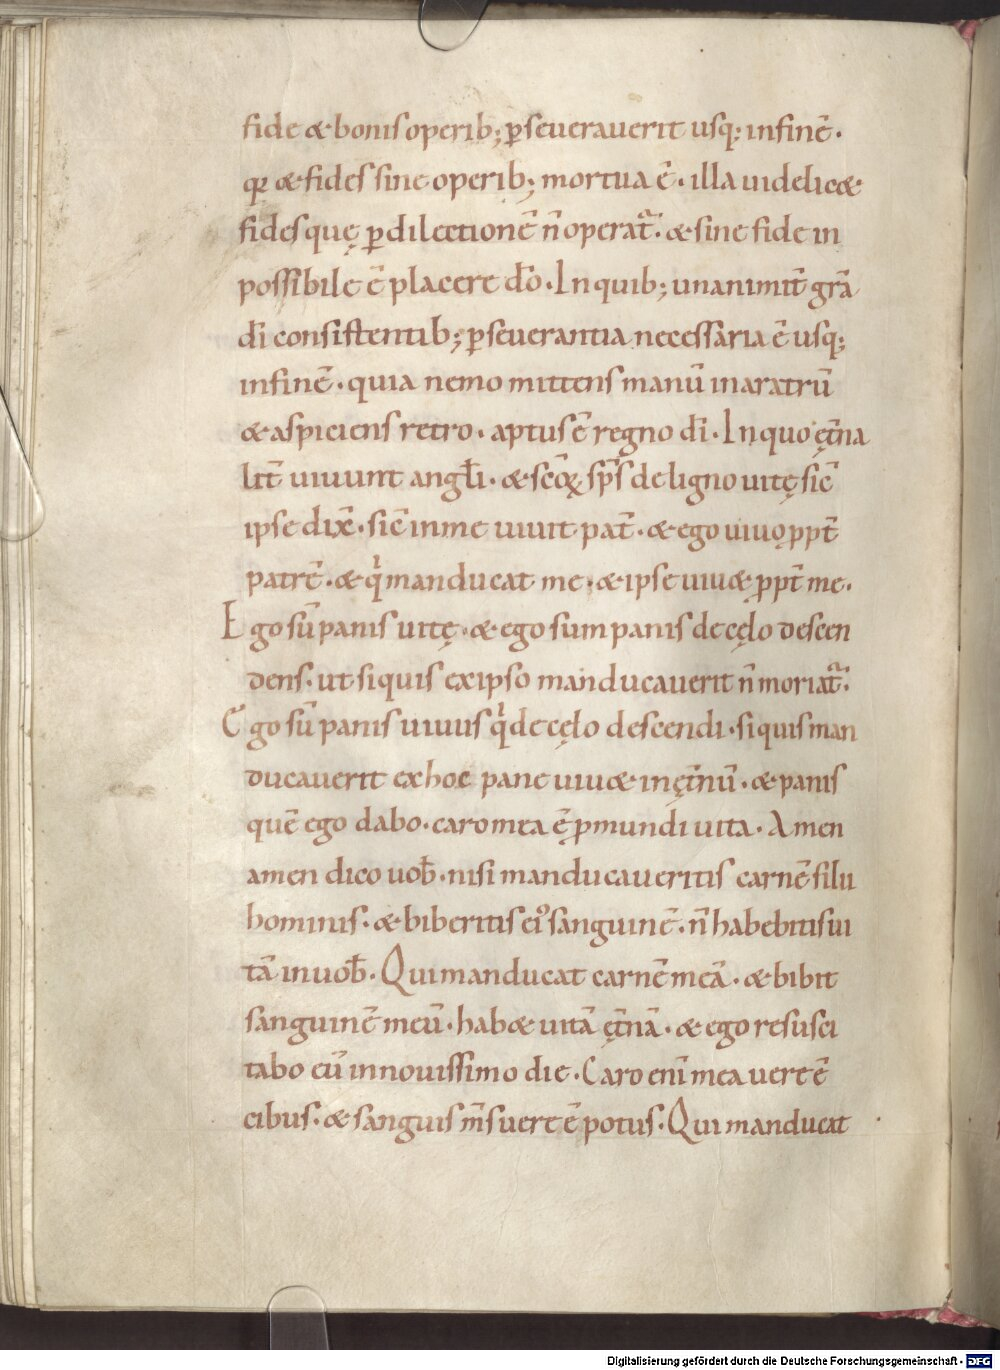 fide & bonis operib; ꝑseuerauerit usq; infinē.
qꝛ & fides sine operib; mortua ē. illa uidelic&
fides quę ꝑ dilectionē n̄ operat̃. & sine fide in
possibile ē placere dō. In quib; unanimit̄ grā
dī consistentib; ꝑseuerantia necessaria ē usq;
infinē. quia nemo mittens manū inaratrū
& aspiciens retro. aptus ē regno dī. In quo ęt̄na
lit̄ uiuunt angłi. & scōꝝ sp̄s de ligno uitę sic̄
ipse dix̄. sic̄ in me uiuit pat̄. & ego uiuo ꝓpt̄
patrē. & qͥ manducat me. & ipse uiu& ꝓpt̄ me.
Ego sū panis uitę. & ego sum panis de cęlo descen
dens. ut siquis ex ipso manducauerit n̄ moriat̃.
Ego sū panis uiuus qͥ de cęlo descendi. si quis man
ducauerit ex hoc pane uiu& in ęt̄nū. & panis
quē ego dabo. caro mea ē ꝓ mundi uita. Amen
amen dico uob̄. nisi manducaueritis carnē filii
hominis. & biberitis eiꝰ sanguinē. n̄ habebitis ui
tā in uob̄. Qui manducat carnē meā. & bibit
sanguinē meū. hab& uitā ęt̄nā. & ego resusci
tabo eū in nouissimo die. Caro enī mea uere ē
cibus. & sanguis m̄s uere ē potus. Qui manducat
Digitalisierung gefördert durch die Deutsche Forschungsgemeinschaft - DFG